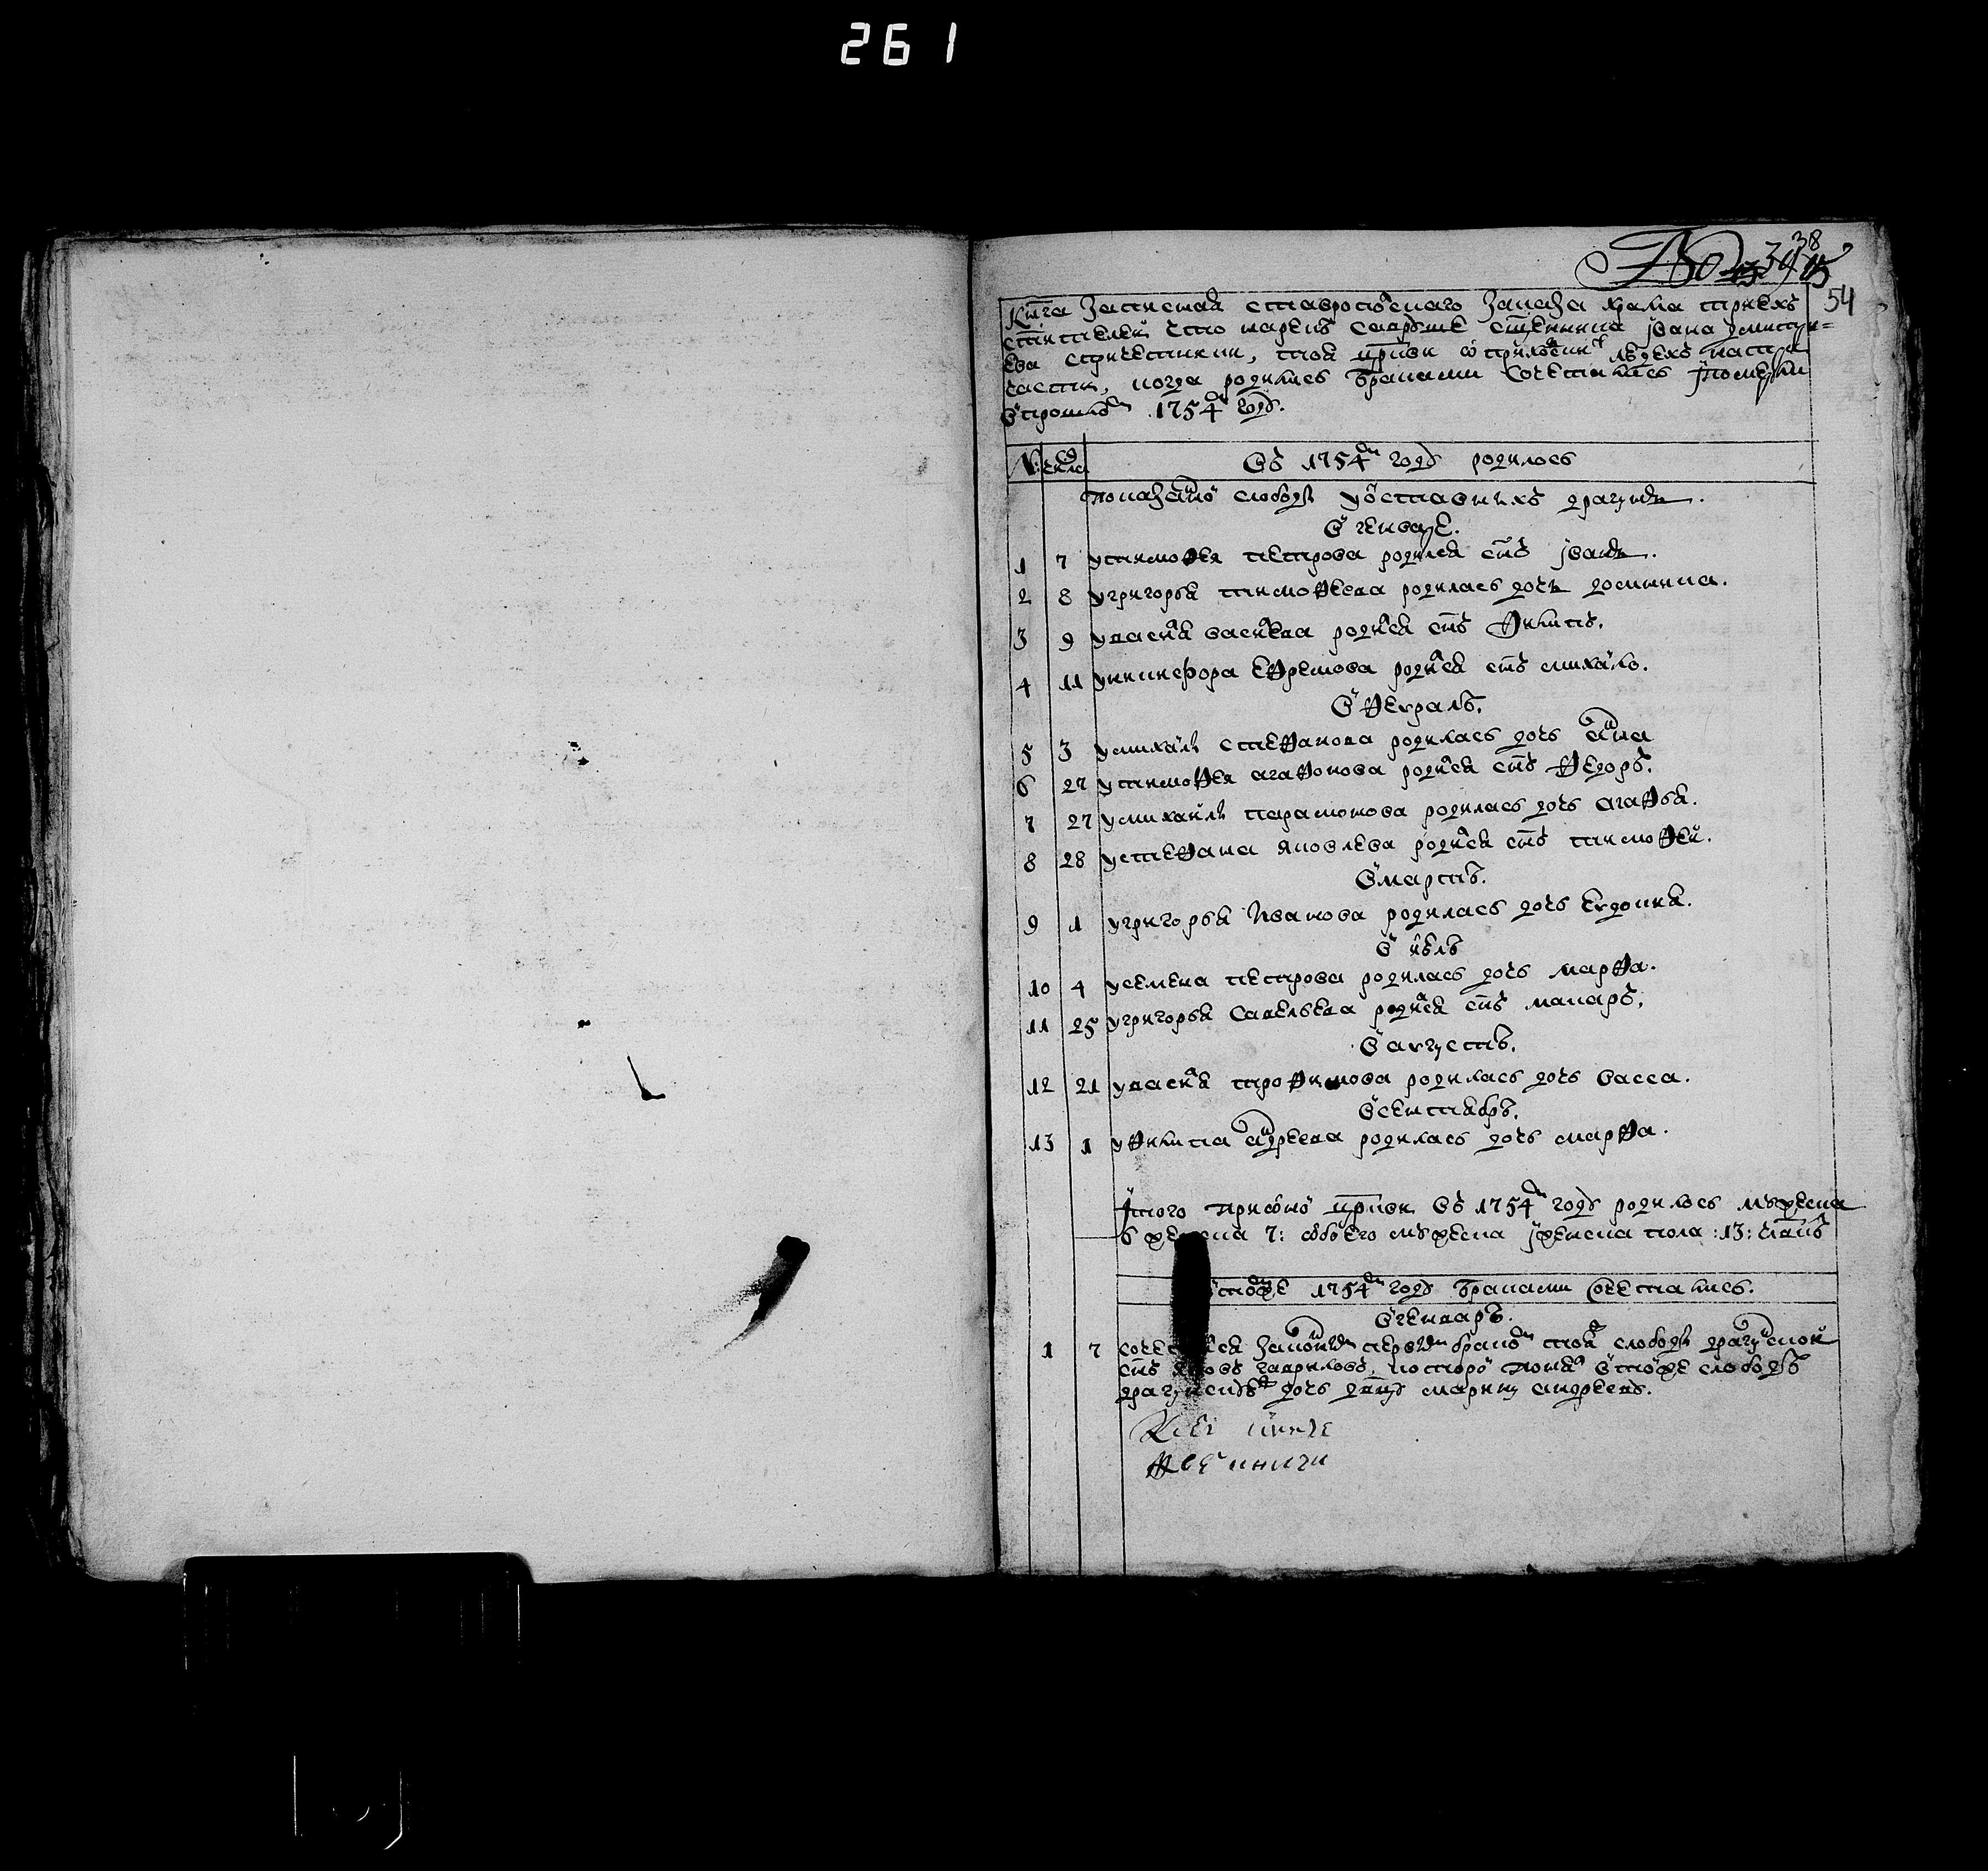 261
38
54
Книга записная ставропольскаго заказа храма трiехъ
святителей что нареч савруше священника Iвана
ева спричетники, тоя церкви
части, когда родились браками сочетались Iпомерли
впрошломъ 1754м году.
№ числа Въ 1754м году родилось
показанной слободы уоставныхъ драгунъ.
В генваре.
1 7 утимофея петрова родился снъ Iванъ.
2 8 угригорья тимофеева родилась дочь домникиа.
3 9 увасилья васильева родился снъ Филипъ.
4 11 уникифора ефремова родился снъ михайло.
В февралѣ.
5 3 умихайлы стефанова родилась дочь анна
6 27 утимофея агафонова родился снъ Федоръ.
7 27 умихайлы парамонова родилась дочь агафья.
8 28 устефана яковлева родился снъ тимофей.
Вмартѣ.
9 1 угригорья Иванова родилась дочь евдокия.
В июлѣ
10 4 усемена петрова родилась дочь марфа.
11 25 угригорья савельева родился снъ макаръ.
В августѣ.
12 21 увасилья трофимова родилась дочь васса.
Всентябрѣ.
13 1 уФилипа андреева родилась дочь марфа.
Iтого прионой церкви въ 1754м году родилось мужеска
6 женска 7: обоего мужеска Iженска пола :13: члвкъ
втомже 1754м году браками сочетались.
Вгенварѣ.
1 7 сочетался законнымъ первымъ бракомъ тоя слободы драгунской
снъ яковъ гавриловъ, которой понялъ втойже слободѣ
драгунскую дочь двцу марину андрееву.